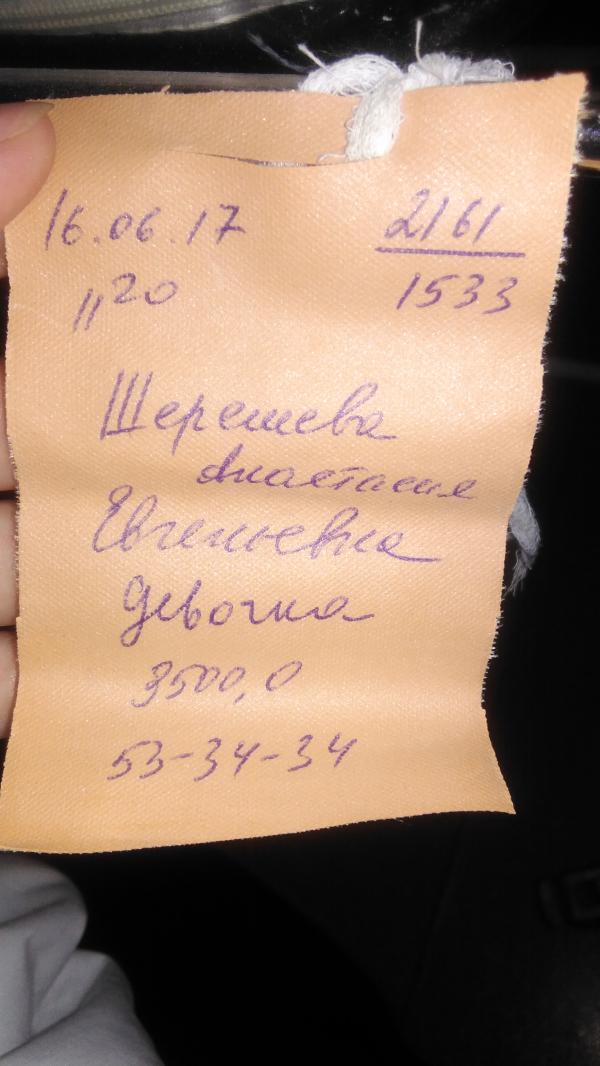 16.06.17 2161
11 20 1533
Шерешева
Анастасия
Евгеньевна
девочка
3500,0
53-34-34